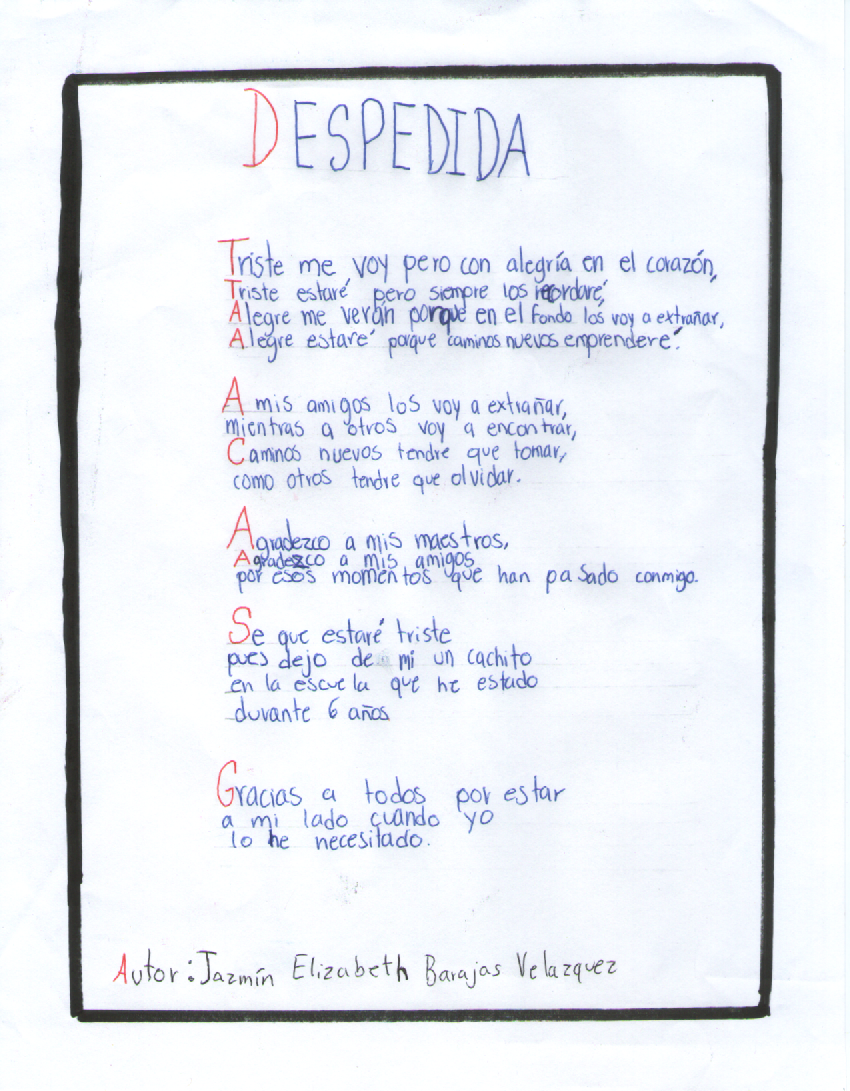 DESPEDIDA
Triste me voy pero con alegría en el corazón,
Triste estaré pero siempre los recordaré,
Alegre me verán porque en el fondo los voy a extrañar,
Alegre estaré porque caminos nuevos emprenderé.
A mis amigos los voy a extrañar,
mientras a otros voy a encontrar,
Caminos nuevos tendre que tomar,
como otros tendre que olvidar.
Agradezco a mis maestros,
Agradezco a mis amigos
por esos momentos que han pasado conmigo.
Se que estaré triste
pues dejo de mi un cachito
en la escuela que he estado
durante 6 años
Gracias a todos por estar
a mi lado cuando yo
lo he necesitado.
Autor: Jazmín Elizabeth Barajas Velazquez